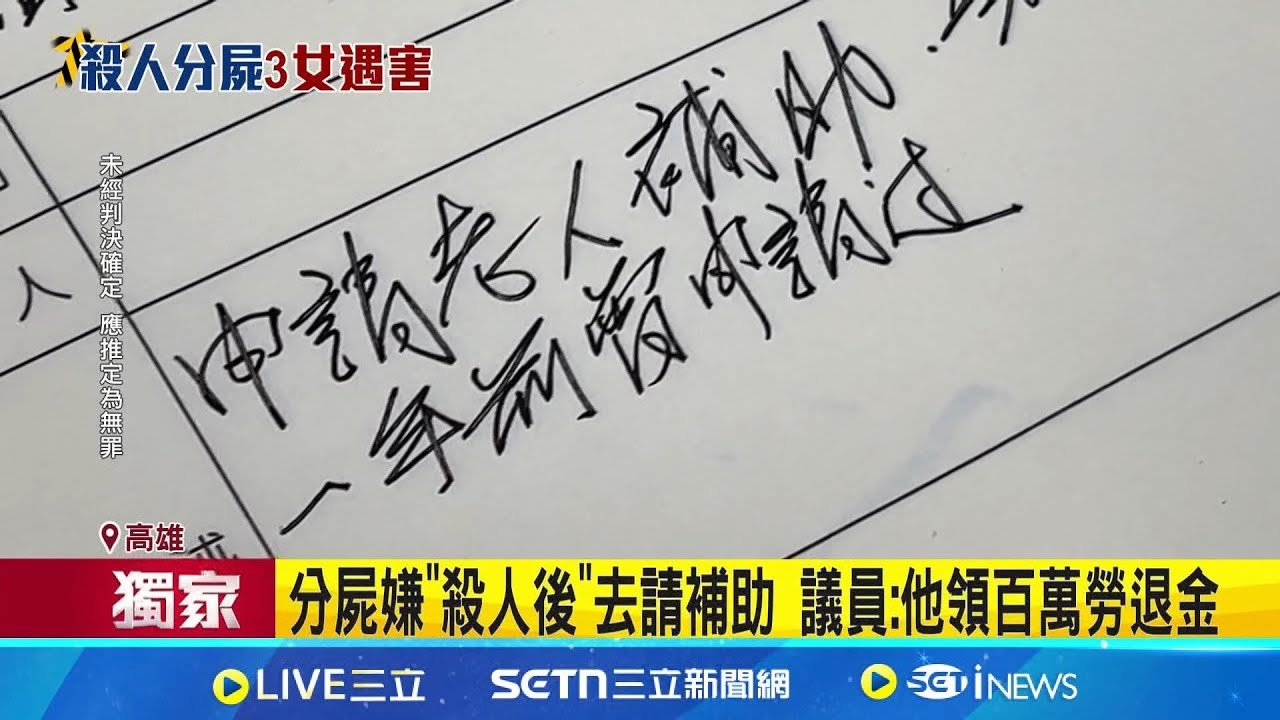 殺人分屍3女遇害
未經判決確定 應推定為無罪
人
申請老人補助.
一年前曾申請过
高雄
獨家
分屍嫌"殺人後"去請補助 議員:他領百萬勞退金
LIVE三立 SETN三立新聞網 SETiNEWS